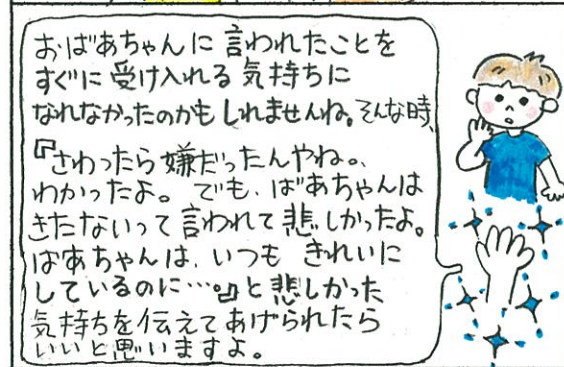 おばあちゃんに言われたことを
すぐに受け入れる気持ちに
なれなかったのかもしれませんね。そんな時、
『さわったら嫌だったんやね。、
わかったよ。でも、ばあちゃんは
きたないって言われて悲しかったよ。
ばあちゃんは、いつもきれいに
しているのに…。』と悲しかった
気持ちを伝えてあげられたら
いいと思いますよ。